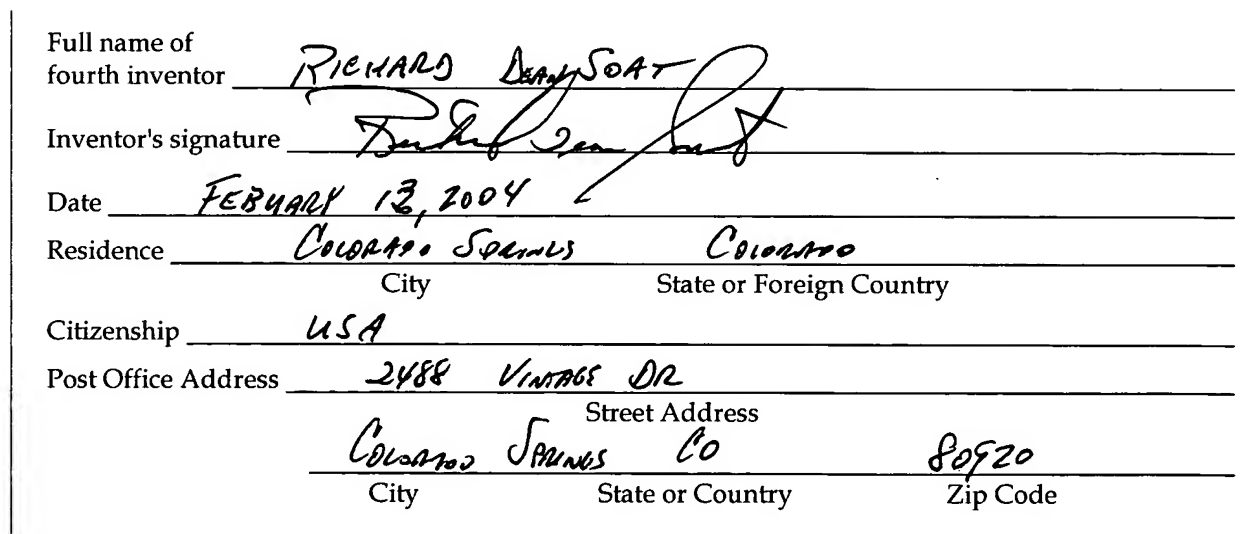 Full name of
fourth inventor RICHARD DEAN SOAT
Inventor's signature Richard Dean Soat
Date FEBUARY 13, 2004
Residence COLORADO SPRINGS COLORADO
City State or Foreign Country
Citizenship USA
Post Office Address 2488 VINTAGE DR
Street Address
COLORADO SPRINGS CO 80920
City State or Country Zip Code